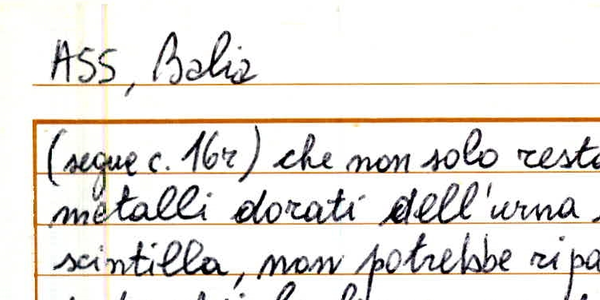 ASS, Balia
(segue c. 16r) che non solo resta
metalli dorati dell'urna
scintilla, non potrebbe ripa